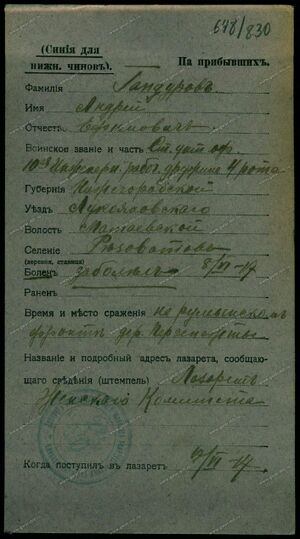 648/830
(Синія для
нижн. чиновъ).
На прибывшихъ.
Фамилія Гандуровъ
Имя Андрей
Отчество Ефимовичъ
Воинское званіе и часть
10й Инженерн. рабоч. дружины 4 рота
Губернія Нижегородской
Уѣздъ Лукояновскаго
Волость
Селеніе
(деревня, станица)
Боленъ заболѣлъ 8/VI-17
Раненъ
Время и мѣсто сраженія на румынскомъ
фронтѣ дер.
Названіе и подробный адресъ лазарета, сообщаю-
щаго свѣдѣнія (штемпель) Лазаретъ
Женскаго Комитета
Когда поступилъ въ лазаретъ 9/VI 17.